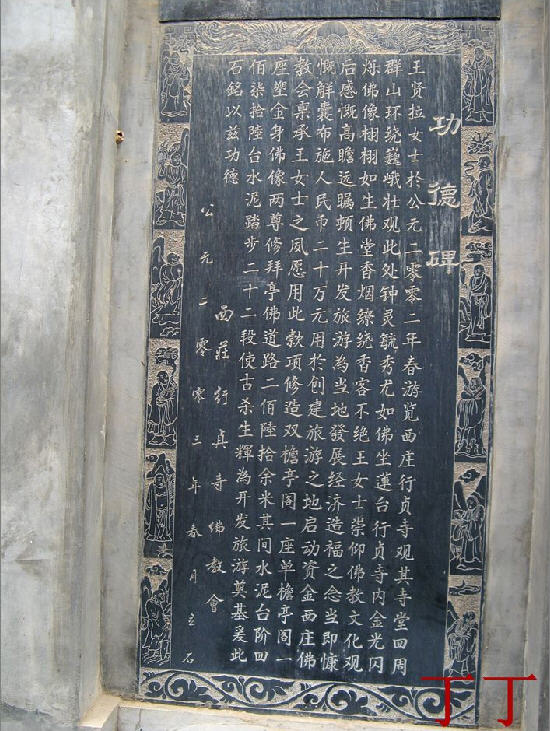 功德碑
王贤拉女士於公元二零零二年春游览西庄行贞寺观其寺堂四周
群山环绕巍峨壮观此处钟灵毓秀尤如佛坐莲台行贞寺内金光闪
烁佛像栩栩如生佛堂香烟缭绕香客不绝王女士崇仰佛教文化观
后感慨高瞻远瞩顿生开发旅游為当地發展经济造福之念当即慷
慨解囊布施人民币二十万元用於创建旅游之地启动资金西庄佛
教会禀承王女士之夙愿用此款项修造双檐亭阁一座单檐亭阁一
座塑金身佛像两尊修拜亭佛道路二佰陸拾余米其间水泥台阶四
佰柒拾陸台水泥踏步二十二段使古杀生輝為开发旅游奠基爰此
石銘以兹功德
西莊行真寺佛教會
公元二零零三年春月立石
丁丁